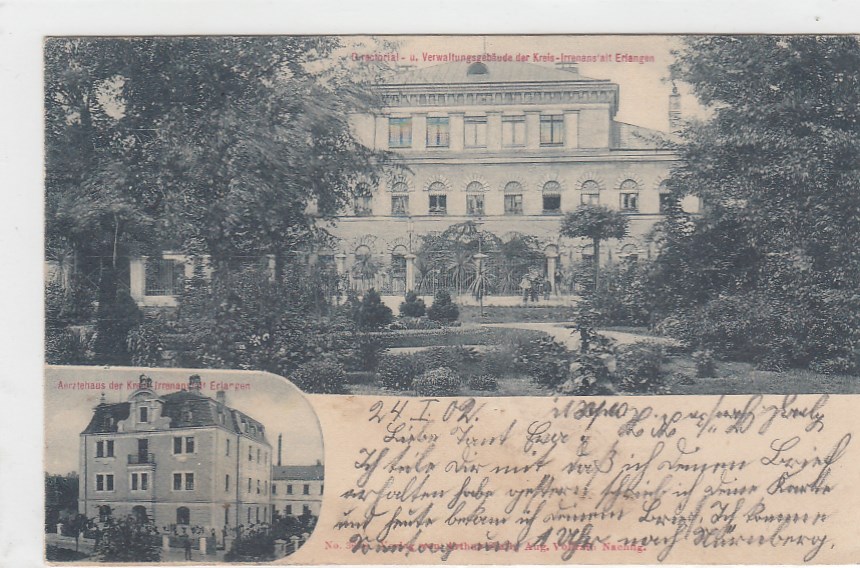 Directorial- u. Verwaltungsgebäude der Kreis-Irrenanstalt Erlangen
Aerztehaus der Kreis-Irrenanstalt Erlangen
24 I 02.
Liebe Tant
Ich teile Dir mit daß ich deinen Brief
erhalten habe gestern schrieb ich deine Karte
und heute bekam ich deinen Brief. Ich komme
Sonntag um 1 Uhr nach Nürnberg.
No. Aug. Nachflg.